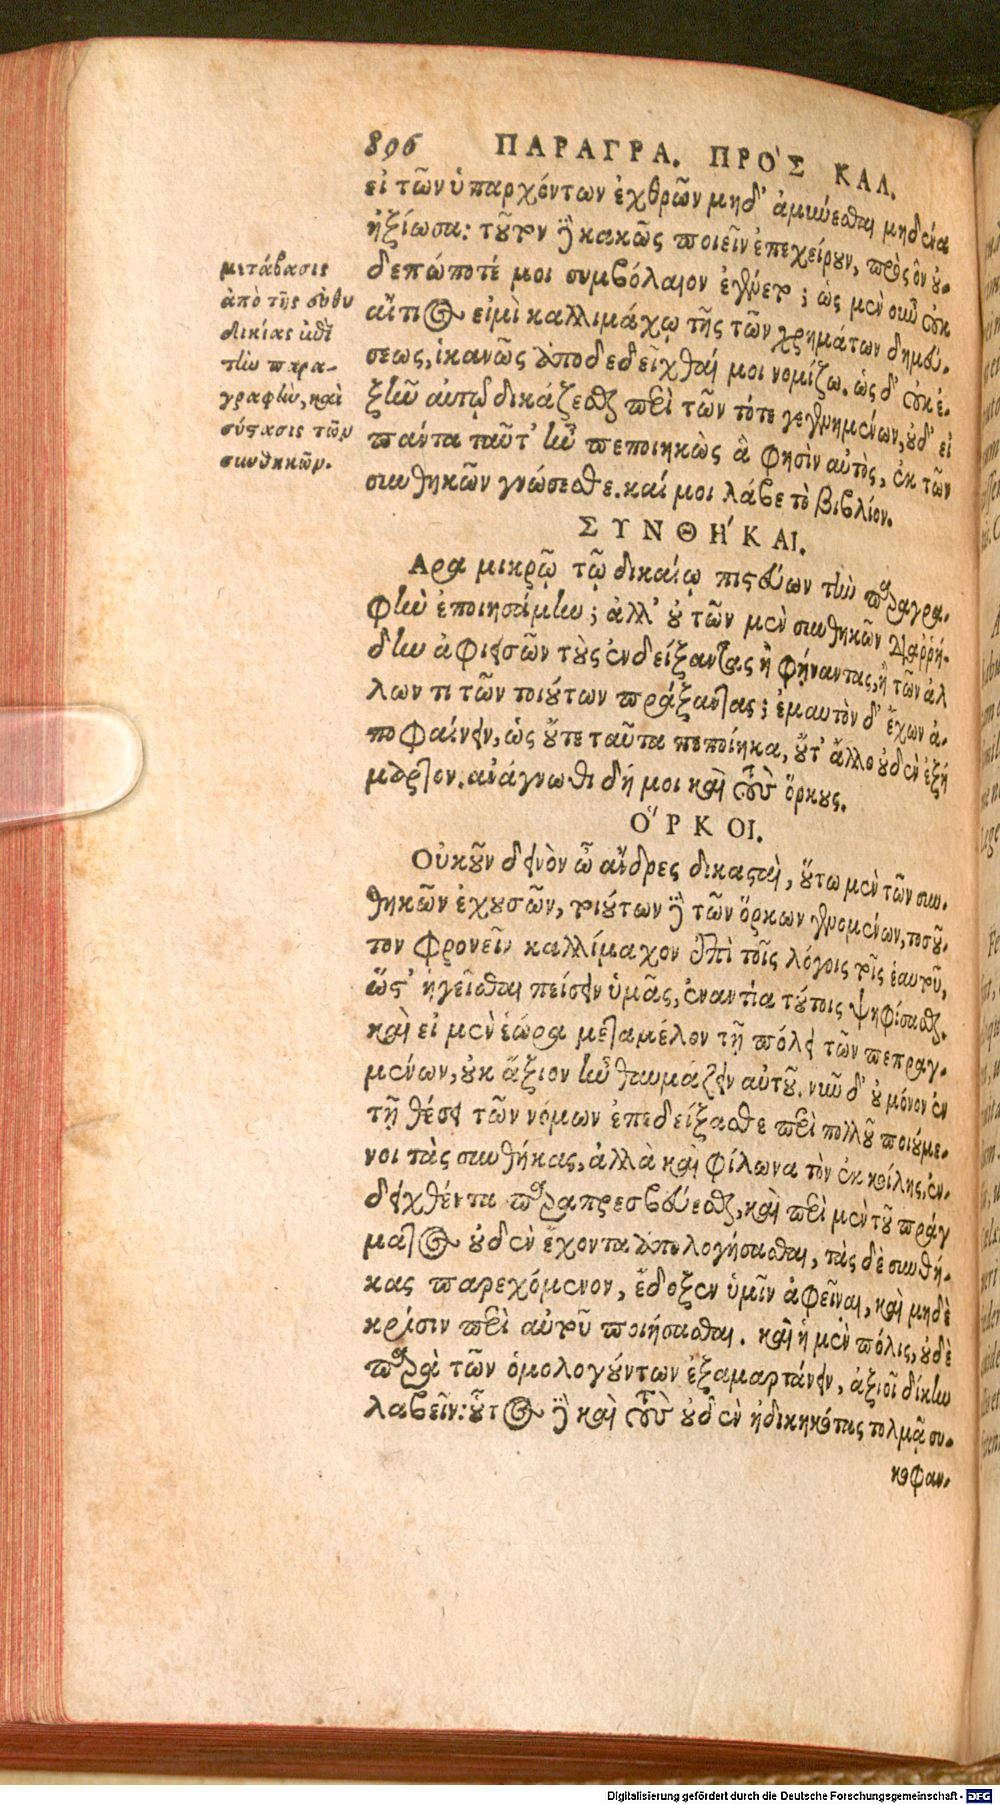 896 ΠΑΡΑΓΡΑ. ΠΡΟ'Σ ΚΑΛ.
εἰ τῶν ὑπαρχόντων ἐχθρῶν μηδ' ἀμύνεσθαι μηδένα
ἠξίωσα: τοῦτον ἢ κακῶς ποιεῖν ἐπεχείρουν, πρὸς ὃν οὐ-
δεπώποτέ μοι συμβόλαιον ἐγένετο; ὡς μὲν οὖν οὐκ
αἴτιος εἰμὶ καλλιμάχῳ τῆς τῶν χρημάτων δημεύ-
σεως, ἱκανῶς ἀποδεδεῖχθαί μοι νομίζω. ὡς δ' οὐκ ἐ-
ξῆν αὐτῷ δικάζεσθαι περὶ τῶν τότε γεγενημένων, οὐδ' εἰ
πάντα ταῦτ' ἦν πεποιηκὼς ἃ φησὶν αὐτὸς, ἐκ τῶν
συνθηκῶν γνώσεσθε. καί μοι λάβε τὸ βιβλίον.
ΣΥΝΘΗ'ΚΑΙ.
Αρα μικρῷ τῷ δικαίῳ πιστεύων τὴν παραγρα-
φὴν ἐποιησάμην; ἀλλ' οὐ τῶν μὲν συνθηκῶν διαῤῥή-
δην ἀφιεισῶν τοὺς ἐνδείξαντας ἢ φήναντας, ἢ τῶν ἀλ
λων τι τῶν τοιούτων πράξαντας; ἐμαυτὸν δ' ἔχων ἀ-
ποφαίνειν, ὡς οὔτε ταῦτα πεποίηκα, οὔτ' ἄλλο οὐδὲν ἐξή
μαρτον. ἀνάγνωθι δή μοι καὶ τοὺς ὅρκους.
Ο"ΡΚΟΙ.
Οὐκοῦν δεινὸν ὦ ἄνδρες δικασταὶ, οὕτω μὲν τῶν συν-
θηκῶν ἐχουσῶν, τοιούτων ἢ τῶν ὅρκων γενομένων, τοσοῦ-
τον φρονεῖν καλλίμαχον ἐπὶ τοῖς λόγοις τοῖς ἑαυτοῦ,
ὥστ' ἡγεῖσθαι πείσειν ὑμᾶς, ἐναντία τούτοις ψηφίσασθαι.
καὶ εἰ μὲν ἑώρα μεταμέλον τῇ πόλει τῶν πεπραγ-
μένων, οὐκ ἄξιον ἦν θαυμάζειν αὐτοῦ. νῦν δ' οὐ μόνον ἐν
τῇ θέσει τῶν νόμων ἐπεδείξασθε περὶ πολλοῦ ποιούμε-
νοι τὰς συνθήκας, ἀλλὰ καὶ φίλωνα τὸν ἐκ κοίλης, ἐν-
δειχθέντα παραπρεσβεύεσθαι, καὶ περὶ μὲν τοῦ πράγ
ματος οὐδὲν ἔχοντα ἀπολογήσασθαι, τὰς δὲ συνθή-
κας παρεχόμενον, ἔδοξεν ὑμῖν ἀφεῖναι, καὶ μηδὲ
κρίσιν περὶ αὐτοῦ ποιήσασθαι. καὶ ἡ μὲν πόλις, οὐδὲ
παρὰ τῶν ὁμολογούντων ἐξαμαρτάνειν, ἀξιοῖ δίκην
λαβεῖν: οὗτος ἢ καὶ τοὺς οὐδὲν ἠδικηκότας τολμᾷ συ-
κοφαν-
μετάβασις
ἀπὸ τῆς εὐθυ
δικίας ἐπὶ
τὴν παρα-
γραφὴν, καὶ
σύστασις τῶν
συνθηκῶν.
Digitalisierung gefördert durch die Deutsche Forschungsgemeinschaft - DFG